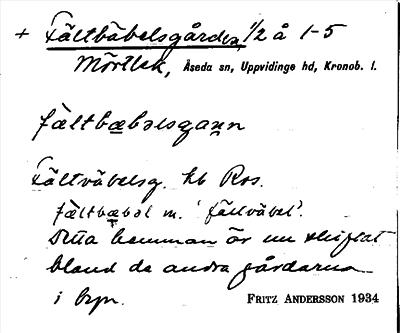 + Fältbäbelsgården, 1/2 å 1-5
Mörtlek, Åseda sn, Uppvidinge hd, Kronob. l.
fàltbæbəlsgaɳn
Fältväbelsg. hb Ros.
fàltbæbəl m. 'fältväbel'.
Detta hemman är nu skiftat
bland de andra gårdarna
i byn. FRITZ ANDERSSON 1934